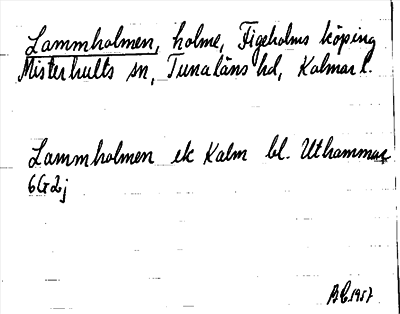 Lammholmen, holme, Figeholms köping
Misterhults sn, Tunaläns hd, Kalmar l.
Lammholmen ek Kalm bl. Uthammar
6G2j
1957